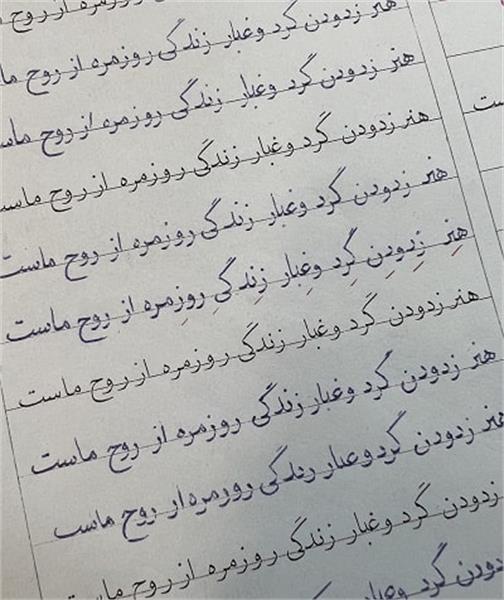 هنر زدودن گرد و غبار زندگی روزمره از روح
هنر زدودن گرد و غبار زندگی روزمره از روح ما
هنر زدودن گرد و غبار زندگی روزمره از روح ماس
هنر زدودن گرد و غبار زندگی روزمره از روح ماست
هنر زدودن گرد و غبار زندگی روزمره از روح ماست
هنر زدودن گرد و غبار زندگی روزمره از روح ماست
هنر زدودن گرد و غبار زندگی روزمره از روح ماست
هنر زدودن گرد و غبار زندگی روزمره از روح ماست
هنر زدودن گرد و غبار زندگی روزمره از روح ماست
زدودن گرد و غبار زندگی روزمره از روح ماست
زدودن گرد و غبار